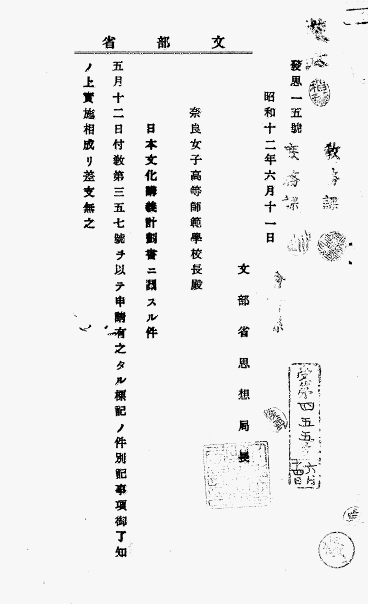 文部省
發思一五號
昭和十二年六月十一日
文部省思想局長
奈良女子高等師範學校長殿
日本文化講義計劃書ニ關スル件
五月十二日付敎第三五七號ヲ以テ申請有之タル標記ノ件別記事項御了知
ノ上實施相成リ差支無之
敎務課
庶務課
受第四五五號